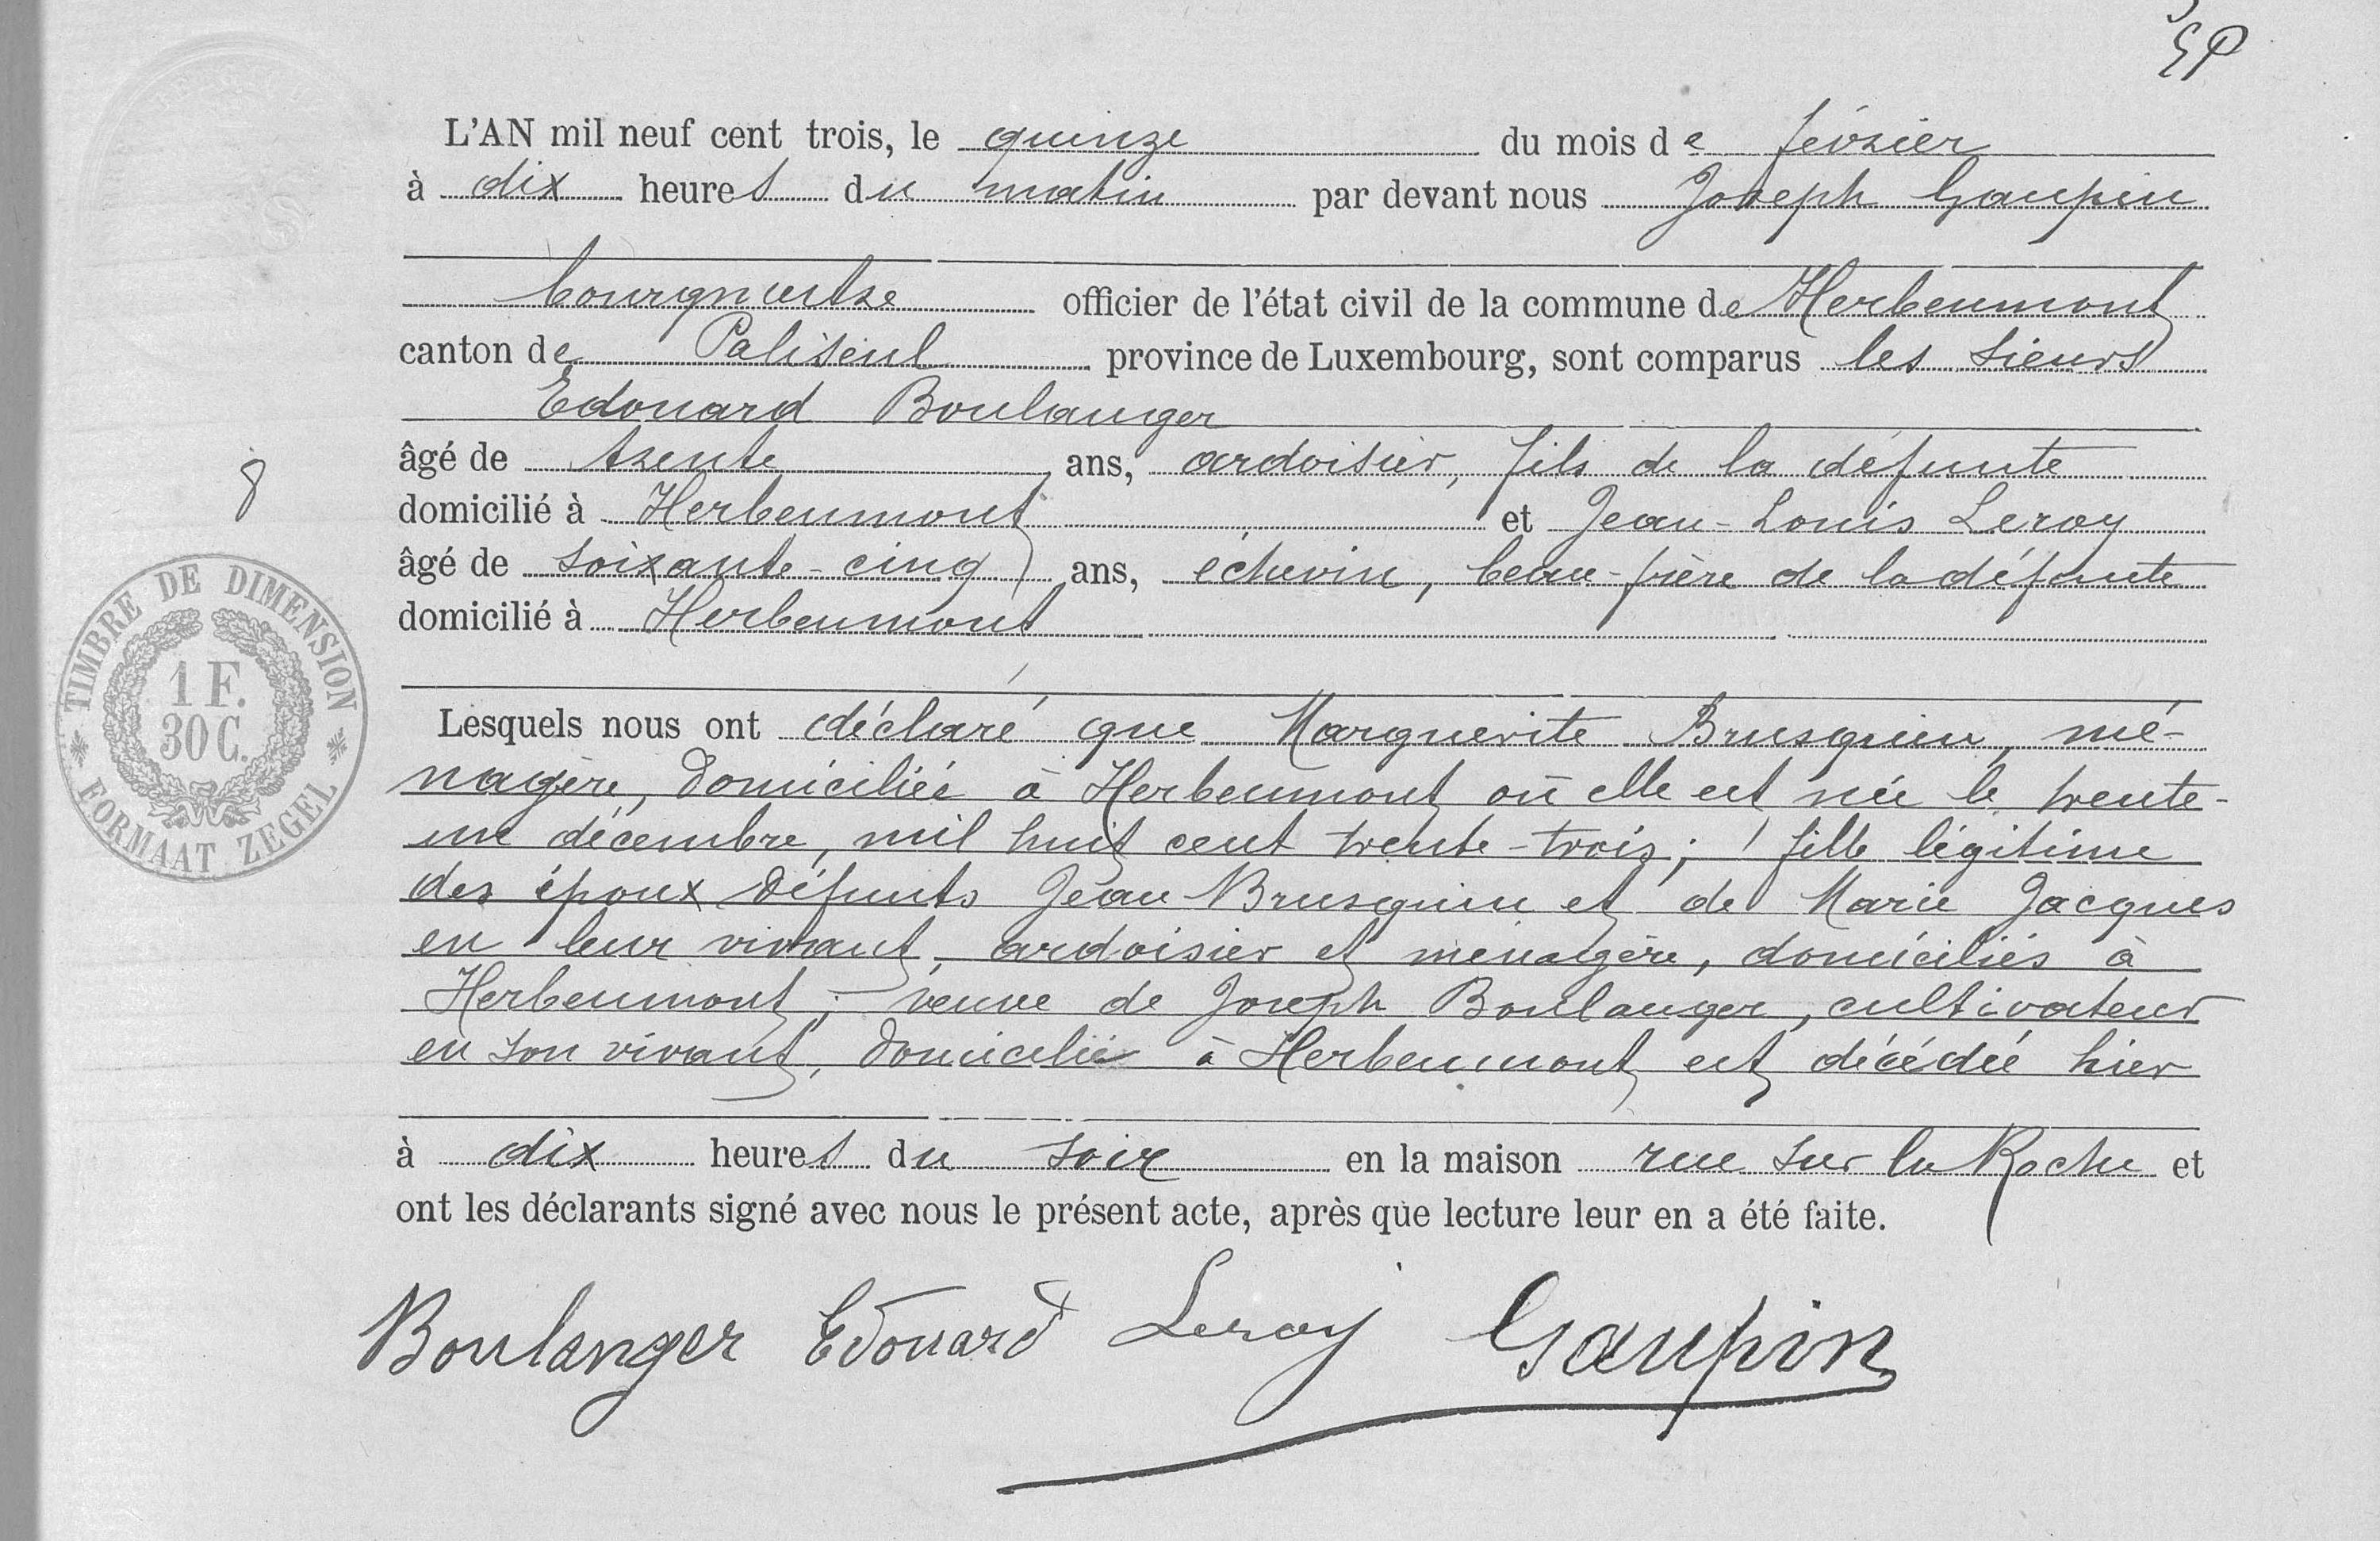 L'AN mil neuf cent trois, le quinze du mois de février
à dix heures du matin par devant nous Joseph Gaupin
bourgmestre officier de l'état civil de la commune de Herbeumont
canton de Paliseul province de Luxembourg, sont comparus les sieurs
Edouard Boulanger
âgé de trente ans, ardoisier, fils de la défunte
domicilié à Herbeumont et Jean-Louis Leroy
âgé de soixante-cinq ans, échevin, beau-frère de la défunte
domicilié à Herbeumont
8
Lesquels nous ont déclaré que Marguerite Brusquin, mé-
nagère, domiciliée à Herbeumont où elle est née le trente-
un décembre, mil huit cent trente-trois; fille légitime
des époux défunts Jean Brusquin et de Marie Jacques
en leur vivant, ardoisier et ménagère, domiciliés à
Herbeumont; veuve de Joseph Boulanger, cultivateur
en son vivant, domicilié à Herbeumont est décédée hier
à dix heures du soir en la maison rue sur la Roche et
ont les déclarants signé avec nous le présent acte, après que lecture leur en a été faite.
Boulanger Edouard Leroy Gaupin
TIMBRE DE DIMENSION
1 F.
30 C.
FORMAAT ZEGEL